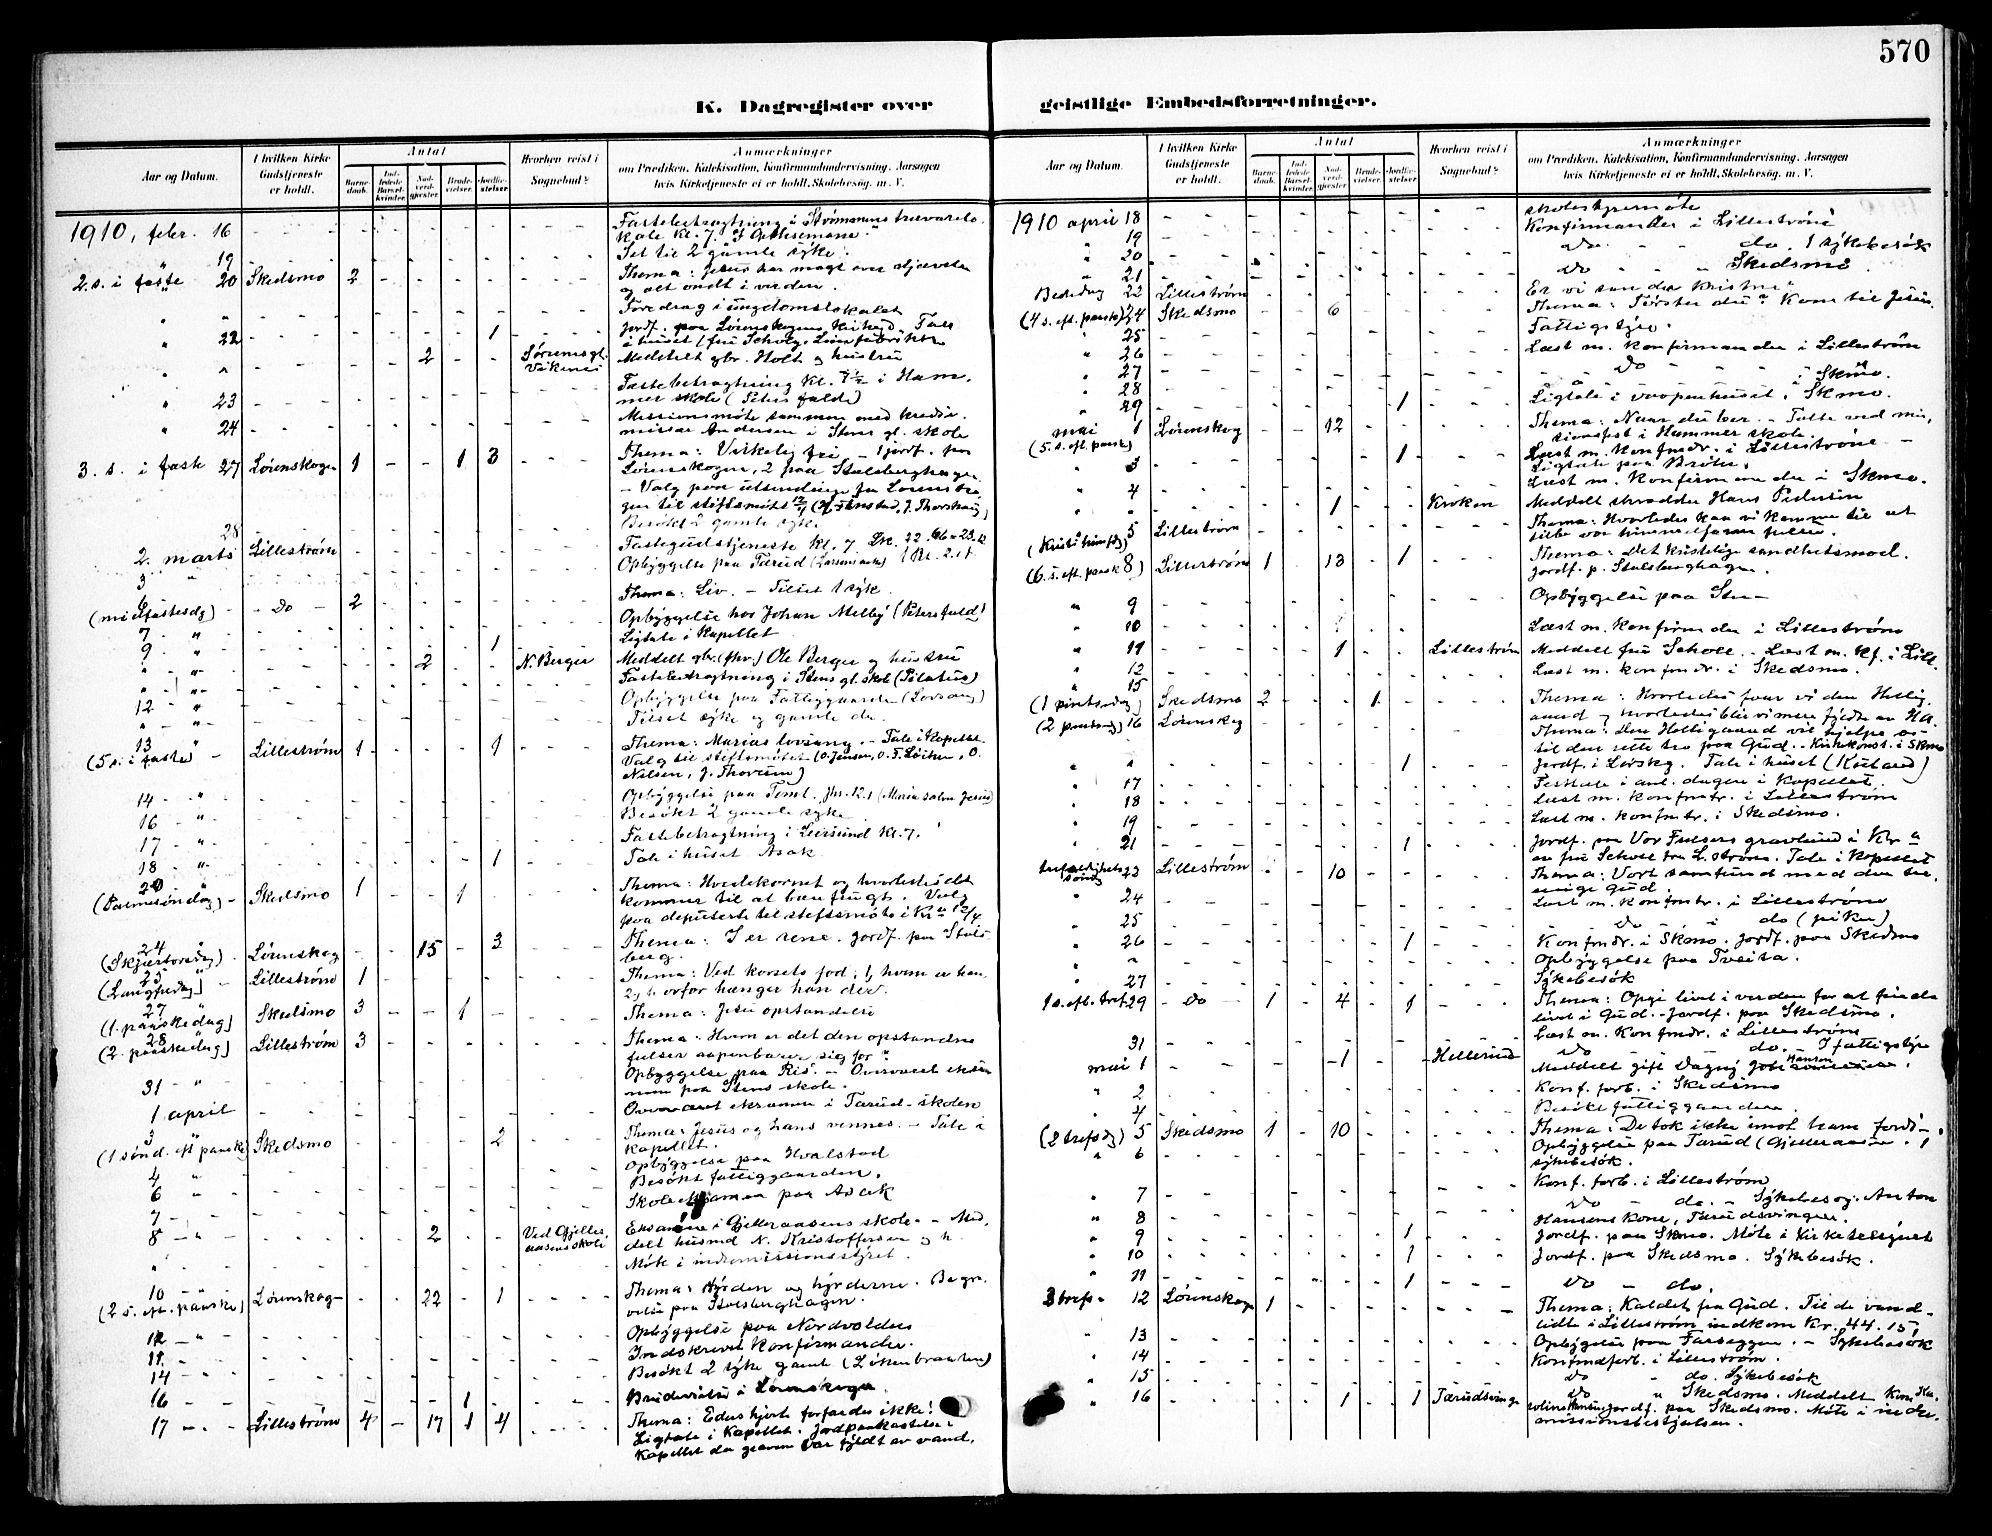 570
K. Dagregister over geistlige Embedsforretninger.
Aar og Datum.
I hvilken Kirke Gudstjeneste er holdt.
Antal
Barnedaab.
Indledede Barselkvinder.
Nadverdgjester
Brudevielser.
Jordfæstelser
Hvorhen reist i Sognebud?
Anmærkninger
om Prædiken, Katekisation, Konfirmandundervisning, Aarsagen
hvis Kirketjeneste ei er holdt, Skolebesøg m. V.
1910, febr. 16 Fastebetragtning i
kale kl. 7. "I Gethsemane"
19 Set til 2 gamle syke.
2. s. i faste 20 Skedsmo 2 Thema: Jesus har magt over djævelen
og alt ondt i verden.
Foredrag i ungdomslokalet
22 1 Jordf. paa Lørenskogens kirkegd. Tale
i huset
2 Meddelt gbr. Holt og hustru
Fastebetragtning kl. 7½ i Ham-
23 mer skole (Peters fald)
Missionsmøte sammen med
24 Andersen i Stens gl. skole
3. s. i faste 27 Lørenskogen 1 - - 1 3 Thema: Virkelig fri - 1 jordf. paa
Lørenskogen, 2 paa Stalsberghagen
- Valg paa utsendinge fra Lørensko-
gen til stiftsmøte
28 Besøkt 2 gamle syke
2. marts Lillestrøm Fastegudstjeneste kl. 7.
3 Opbyggelse paa Tærud
6 Thema: Liv. - Tilset 1 syk.
(midfastesdg) - Do - 2
7 Opbyggelse hos Johan Melby (Petersfald)
9 1 Ligtale i kapellet
2 N. Berger Meddelt gbr. (fhv.) Ole Berger og hustru
Fastebetragtning i Stens gl. skole (Pilatus)
12 Opbyggelse paa Fattiggaarden (Lovsang)
Tilset syke og gamle do.
13 Lillestrøm 1 1 Thema: Marias lovsang. - Tale i kapellet
(5 s. i faste) Valg til stiftsmøtet (O. Jensen, O. F. Løiken, O.
Nilsen, J. Thorum)
14
16 Besøkt 2 gamle syke
17 Fastebetragtning i Leirsund kl. 7.
18 1 Tale i huset Asak
20 Thema: Hvedekornet og hvorledes det
(Palmesøndag) - Skedsmo 1 1 kommer til at bære frugt. Valg
paa deputerte til stiftsmøte i Kra 12/4
24 3 Thema: I er rene. Jordf. paa Stals-
(Skjærtorsdg) Lørenskog 15 berg.
25 Lillestrøm 1 Thema: Ved korsets fod; 1, hvem er han
(Langfredag) 2, hvorfor hænger han der.
27 Skedsmo 3 - - 1 Thema: Jesu opstandelse
(1. paaskedag)
28 Lillestrøm 3 Thema: Hvem er det den opstandne
(2. paaskedag) frelser aapenbarer sig for"
Opbyggelse paa Ris. - Overværet eksa-
31 men paa Stens skole.
1 april Overværet eksamen i Tærud-skolen
3 2 Thema: Jesus og hans venner. - Tale i
(1 sønd. eft paaske) Skedsmo kapellet.
Opbyggelse paa Hvalstad
4 Besøkt fattiggaarden.
6 Skoleeksamen paa Asak
7 Eksamen i Gjelleraasens skole. - Med-
8 2 Ved Gjelleraasens skole delt husmd N. Kristoffersen og h.
Møte i indremissionsstyret.
10 Thema: Hyrden og hyrderne. Begra-
(2 s. eft. paaske) Lørenskog 22 - 1 velse paa Stalsberghagen.
Opbyggelse paa Nordvolden
12 Indskrevet konfirmander.
14 Besøkt 2 syke gamle (Løkenbraaten)
16 1 Brudevielse i Lørenskogen.
17 Lillestrøm 4 - 17 1 4 Thema: Eders hjerte forfærdes ikke!
Ligtale i kapellet. Jordpaakastelse i
kapellet da graven var fyldt av vand.
1910 april 18 skolestyremøte
19 Konfirmander i Lillestrøm
20 do do. 1 sykebesøk
21 do Skedsmo
Bededag 22 Lillestrøm Er vi sande kristne"
(4 s. eft. paaske) 24 Skedsmo 6 Thema: Tørster du" Kom til Jesus.
25 Fattigstyre.
26 Læst m. konfirmander i Lillestrøm
27 do Skmo.
28
29 1 Ligtale i vaapenhuset i Skmo.
mai 1 Lørenskog - - 12 Thema: Naar du ber. - Tale ved mis-
(5. s. eft. paaske) sionsfest i Hammer skole.
3 1 Læst m. konfmdr. i Lillestrøm -
Ligtale paa Braate.
4 Læst m. konfirmander i Skmo.
1 Kroken Meddelt skrædder Hans Pedersen
5 Lillestrøm Thema: Hvorledes kan vi komme til at
(Kristi himfdg)
(6. s. eft. paaske 8) Lillestrøm 1 - 13 - 1 Thema: Det kristelige sandhetsmod.
Jordf. p. Stalsberghagen.
9 Opbyggelse paa Sten
10 Læst m. konfirmander i Lillestrøm
11 1 Lillestrøm Meddelt fru Scholl. - Læst m. kf. i Lill.
12 Læst m. konfmdr. i Skedsmo.
15 Thema: Hvorledes faar vi den Hellig-
(1 pintsedag) Skedsmo 2 1 aand og hvorledes blir vi mere fyldte av HA.
(2 pintsedg) 16 Lørenskog Thema: Den Helligaand vil hjelpe os
til den rette tro paa Gud. - Kirkekonst. i Skmo
1 Jordf. i Lørskg. Tale i huset
17 Festtale i anl. dagen i kapellet
18 Læst m. konfmdr. i Lillestrøm
19 Læst m. konfmdr. i Skedsmo.
21 1 Jordf. paa Vor Frelsers gravlund i Kr.a
av fru Scholl fra L.strøm. Tale i kapellet
Trefoldighets søndg 23 Lillestrøm 10 Thema: Vort samfund med den tre-
enige Gud.
24 Læst m. konfmdr. i Lillestrøm
25 do i do (piker)
26 1 Konfmdr. i Skmo. Jordf. paa Skedsmo
Opbyggelse paa Tveita.
27 Sykebesøk
1 s. eft. tref. 29 - do - 1 - 4 - 1 Thema: Opgi livet i verden for at finde
livet i Gud. - Jordf. paa Skedsmo.
Læst m. konfmdr. i Lillestrøm
31 do do. - I fattigstyre
mai 1 1 Hellerud Meddelt gift Dagny Hansen
2 Konf. forb. i Skedsmo
4 Besøkt fattiggaarden.
(2 trefsdg) 5 Skedsmo 1 - 10 Thema: De tok ikke imot ham fordi -
6 Opbyggelse paa Tærud (Gjelleraasen. 1
sykebesøk.
7 Konf. forb. i Lillestrøm
do - do. - Sykebesøg. Anton
8 Hansens kone, Tærudsvingen.
9 1 Jordf. paa Skmo. Møte i kirketilsynet
10 1 Jordf. paa Skedsmo. Sykebesøk.
11 1 do - do.
3 tref. 12 Lørenskog 1 Thema: Kaldet fra Gud. Til de vand-
lidte i Lillestrøm indkom kr. 44.15.
13 Opbyggelse paa Farseggen. - Sykebesøk
14 Konfmdforb. i Lillestrøm.
15 do - do. Sykebesøk
16 1 1 Tærudsvinge do " Skedsmo. Meddelt
Jordf. paa Skedsmo. Møte i indre-
missionsbestyrelsen.